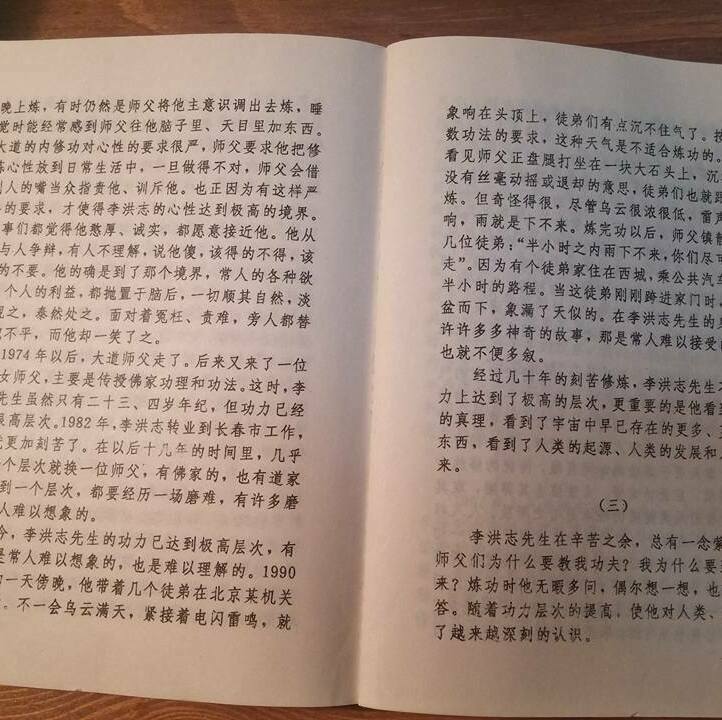 晚上炼，有时仍然是师父将他主意识调出去炼，睡
觉时能经常感到师父往他脑子里、天目里加东西。
大道的内修功对心性的要求很严，师父要求他把修
炼心性放到日常生活中，一旦做得不对，师父会借
别人的嘴当众指责他、训斥他。也正因为有这样严
的要求，才使得李洪志的心性达到极高的境界。
事们都觉得他憨厚、诚实，都愿意接近他。他从
与人争辩，有人不理解，说他傻，该得的不得，该
的不要。他的确是到了那个境界，常人的各种欲
个人的利益，都抛置于脑后，一切顺其自然，淡
视之，泰然处之。面对着冤枉、责难，旁人都替
不平，而他却一笑了之。
1974年以后，大道师父走了。后来又来了一位
女师父，主要是传授佛家功理和功法。这时，李
先生虽然只有二十三、四岁年纪，但功力已经
很高层次。1982年，李洪志转业到长春市工作，
更加刻苦了。在以后十几年的时间里，几乎
个层次就换一位师父，有佛家的，也有道家
到一个层次，都要经历一场磨难，有许多磨
人难以想象的。
今，李洪志先生的功力已达到极高层次，有
是常人难以想象的，也是难以理解的。1990
的一天傍晚，他带着几个徒弟在北京某机关
。不一会乌云满天，紧接着电闪雷鸣，就
象响在头顶上，徒弟们有点沉不住气了。按
数功法的要求，这种天气是不适合炼功的。
看见师父正盘腿打坐在一块大石头上，沉
没有丝毫动摇或退却的意思，徒弟们也就跟
炼。但奇怪得很，尽管乌云很浓很低，雷声
响，雨就是下不来。炼完功以后，师父镇静
几位徒弟：“半小时之内雨下不来，你们尽可
走”。因为有个徒弟家住在西城，乘公共汽车
半小时的路程。当这徒弟刚刚跨进家门时，
盆而下，象漏了天似的。在李洪志先生的身
许许多多神奇的故事，那是常人难以接受的
也就不便多叙。
经过几十年的刻苦修炼，李洪志先生不
力上达到了极高的层次，更重要的是他看到
的真理，看到了宇宙中早已存在的更多、更
东西，看到了人类的起源、人类的发展和
来。
（三）
李洪志先生在辛苦之余，总有一念萦
师父们为什么要教我功夫？我为什么要到
来？炼功时他无暇多问，偶尔想一想，也
答。随着功力层次的提高，使他对人类、
了越来越深刻的认识。